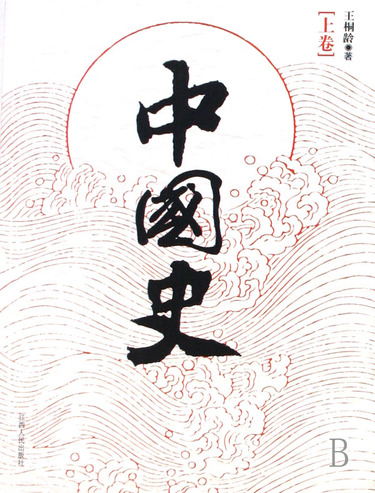 王桐龄●著
[上卷]
中國史
江西人民出版社
B